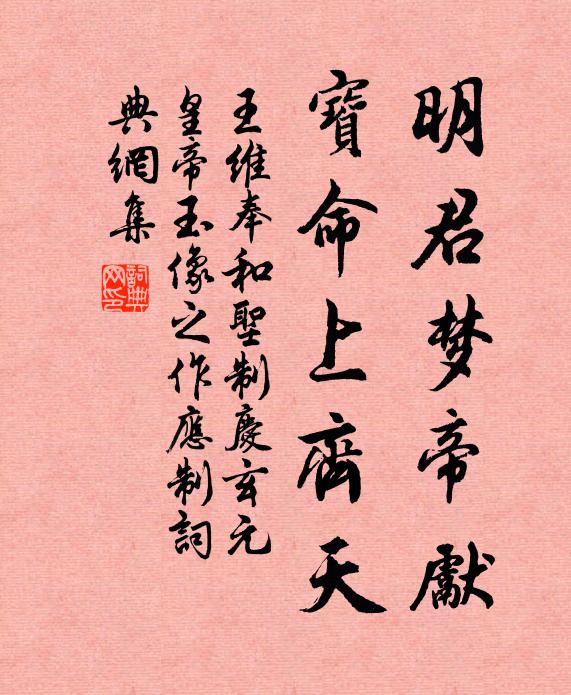 明君梦帝獻
寶命上齊天
王維奉和聖制慶玄元
皇帝玉像之作應制詞
典網集
詞典网印